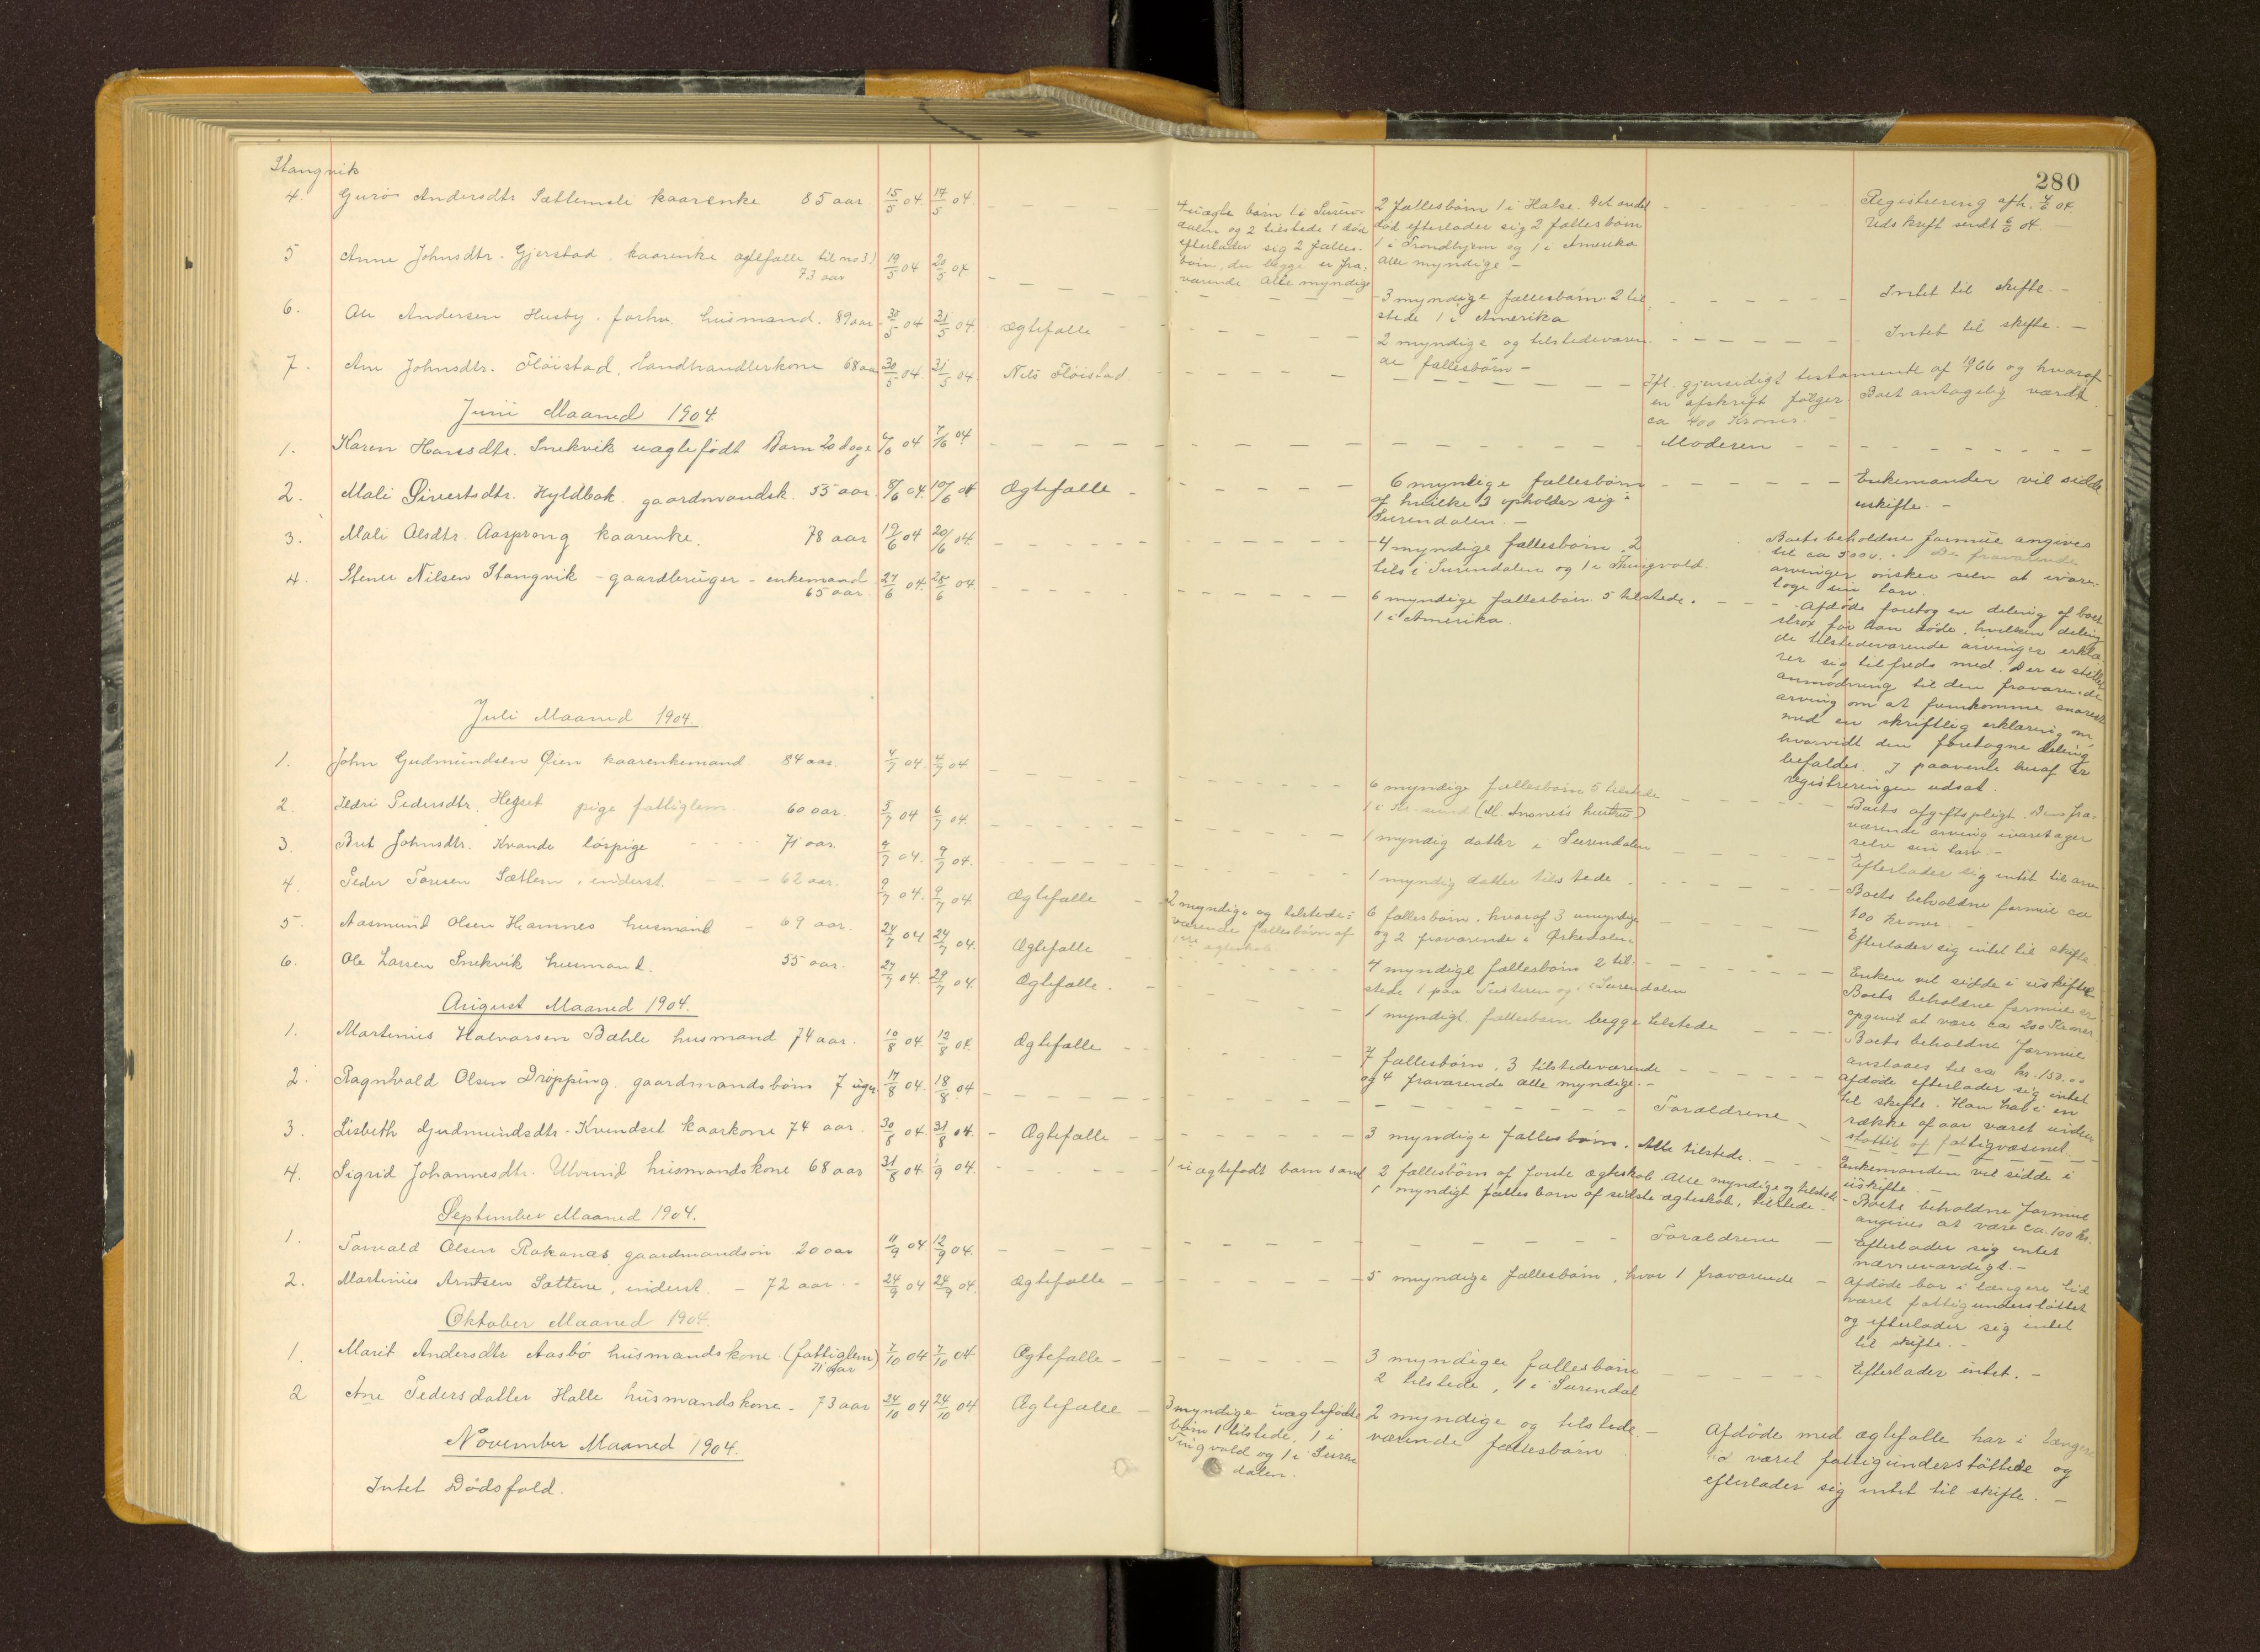 280
Stangvik
4 Guro Andersdtr Sætlemsli kaarenke 85 aar. 15/5 04 17/5 04. 
4 uægte børn 1 i Suren-
dalen og 2 tilstede 1 død
efterlader sig 2 fælles-
børn, der begge er fra-
værende Alle myndige
2 fællesbørn 1 i Halse. Det andet
død efterlader sig 2 fællesbørn
1 i Trondhjem og 1 i Amerika
alle myndige -
Registrering afh. 04.
Udskrift sendt 04.
5 Anne Johnsdtr. Gjerstad kaarenke ægtefælle til no 3)
73 aar 19/5 04 20/5 04
3 myndige fællesbørn. 2 til-
stede 1 i Amerika
Intet til skifte. -
6. Ole Andersen Husby. forhv. husmand. 89 aar 30/5 04 31/5 04. ægtefælle
2 myndige og tilstedeværen-
de fællesbørn -
Intet til skifte. -
7. Ane Johnsdtr. Fløistad. landhandlerkone 68 aar 30/5 04. 31/5 04. Nils Fløistad
Ifl. gjensidigt testamente af og hvoraf
en afskrift følger. Boet antagelig værdt
ca 400 Kroner. -
Juni Maaned 1904.
1. Karen Hansdtr. Snekvik uægtefødt Barn 20 dage 6/6 04 7/6 04 Moderen
2. Mali Sivertsdtr. Hyldbak. gaardmandsk. 55 aar. 8/6 04. 10/6 04 Ægtefælle -
6 myndige fællesbørn
af hvilke 3 opholder sig i
Surendalen. -
Enkemanden vil sidde
uskifte. -
3. Mali Olsdtr. Aasprong kaarenke. 78 aar 19/6 04 20/6 04.
4 myndige fællesbørn. 2
tils i Surendalen og 1 i Thingvold
Boets beholdne formue angives
til ca 300 v. De fraværende
arvinger ønsker selv at ivare-
tage sin tarv.
4. Stener Nilsen Stangvik - gaardbruger - enkemand
65 aar. 27/6 04. 28/6 04.
6 myndige fællesbørn. 5 tilstede.
1 i Amerika.
- Afdøde foretog en deling af boet
strax før han døde, hvilken deling
de tilstedeværende arvinger erklæ-
rer sig tilfreds med. Der er stillet
anmodning til den fraværende
arving om at fremkomme snarest
med en skriftlig erklæring om,
hvorvidt den foretagne deling
befaldes. I paavente heraf er
registreringen udsat.
Juli Maaned 1904.
1. John Gudmundsen Øien kaarenkemand 84 aar. 4/7 04. 4/7 04.
6 myndige fællesbørn 5 tilstede
1 i Kr. sund
Boets afgiftspligt. Den fra-
værende arving ivaretager
selv sin tarv. -
2. Ildri Pedersdtr. Hegset pige fattiglem. 60 aar. 5/7 04 6/7 04.
1 myndig datter i Surendalen
Efterlader sig intet til arv
3. Brit Johnsdtr. Kvande løspige 71 aar. 9/7 04. 9/7 04.
1 myndig datter tilstede.
Boets beholdne formue ca
100 Kroner. -
4. Peder Toresen Sætlem. inderst. 62 aar. 9/7 04. 9/7 04 Ægtefælle
2 myndige og tilstede-
værende fællesbørn af
1ste ægteskab.
6 fællesbørn. hvoraf 3 umyndige
og 2 fraværende i Ørkedalen.
Efterlader sig intet til skifte.
5. Aasmund Olsen Hamnes husmand - 69 aar. 24/7 04 24/7 04. Ægtefælle
4 myndige fællesbørn 2 til-
stede 1 paa Tusteren og 1 i Surendalen
Enken vil sidde i uskiftet
Boets beholdne formue er
opgivet at være ca 200 Kroner
6. Ole Larsen Snekvik husmand. 55 aar. 27/7 04. 29/7 04. Ægtefælle.
1 myndigt. fællesbørn begge tilstede
Boets beholdne formue
anslaaes til ca kr. 150.00
August Maaned 1904.
1. Martinus Halvorsen Bæhle husmand 74 aar. 10/8 04. 12/8 04. Ægtefælle
7 fællesbørn. 3 tilstedeværende
og 4 fraværende alle myndige. -
Afdøde efterlader sig intet
til skifte. Han har i en
række af aar været under-
støttet af fattigvæsenet
2. Ragnhvald Olsen Drøpping. gaardmandsbørn 7 uger 17/8 04. 18/8 04 Forældrene
3. Lisbeth Gjudmundsdtr. Kvendset kaarkone 74 aar. 30/8 04. 31/8 04. - Ægtefælle -
3 myndige fællesbørn. Alle tilstede. -
Enkemanden vil sidde i
uskifte. -
4. Sigrid Johannesdtr. Ulvund husmandskone 68 aar 31/8 04. 1/9 04.
1 uægtefødt barn samt 2 fællesbørn af første ægteskab. Alle myndige og tilstede
1 myndigt fælles barn af sidste ægteskab, tilstede.
- Boets beholdne formue
angives at være ca. 100 kr.
September Maaned 1904.
1. Torvald Olsen Rakanæs gaardmandsøn 20 aar 11/9 04 12/9 04. Forældrene
Efterlader sig intet
nævneværdigt. -
2. Martinus Arntsen Sættene, inderst. - 72 aar - 24/9 04 24/9 04. Ægtefælle
5 myndige fællesbørn, hvor 1 fraværende -
Afdøde har i længere tid
været fattigunderstøttet
og efterlader sig intet
til skifte. -
Oktober Maaned 1904.
1. Marit Andersdtr Aasbø husmandskone (fattiglem)
71 aar 7/10 04 7/10 04 Ægtefælle -
3 myndige fællesbørn
2 tilstede, 1 i Surendal
Efterlader intet. -
2 Ane Pedersdatter Halle husmandskone. 73 aar 24/10 04 24/10 04 Ægtefælle -
3 myndige uægtefødte
børn 1 tilstede, 1 i
Tingvold og 1 i Suren
dalen.
2 myndige og tilstede-
værende fællesbørn
Afdøde med ægtefælle har i længere
tid været fattigunderstøttede og
efterlader sig intet til skifte. -
November Maaned 1904.
Intet Dødsfald.